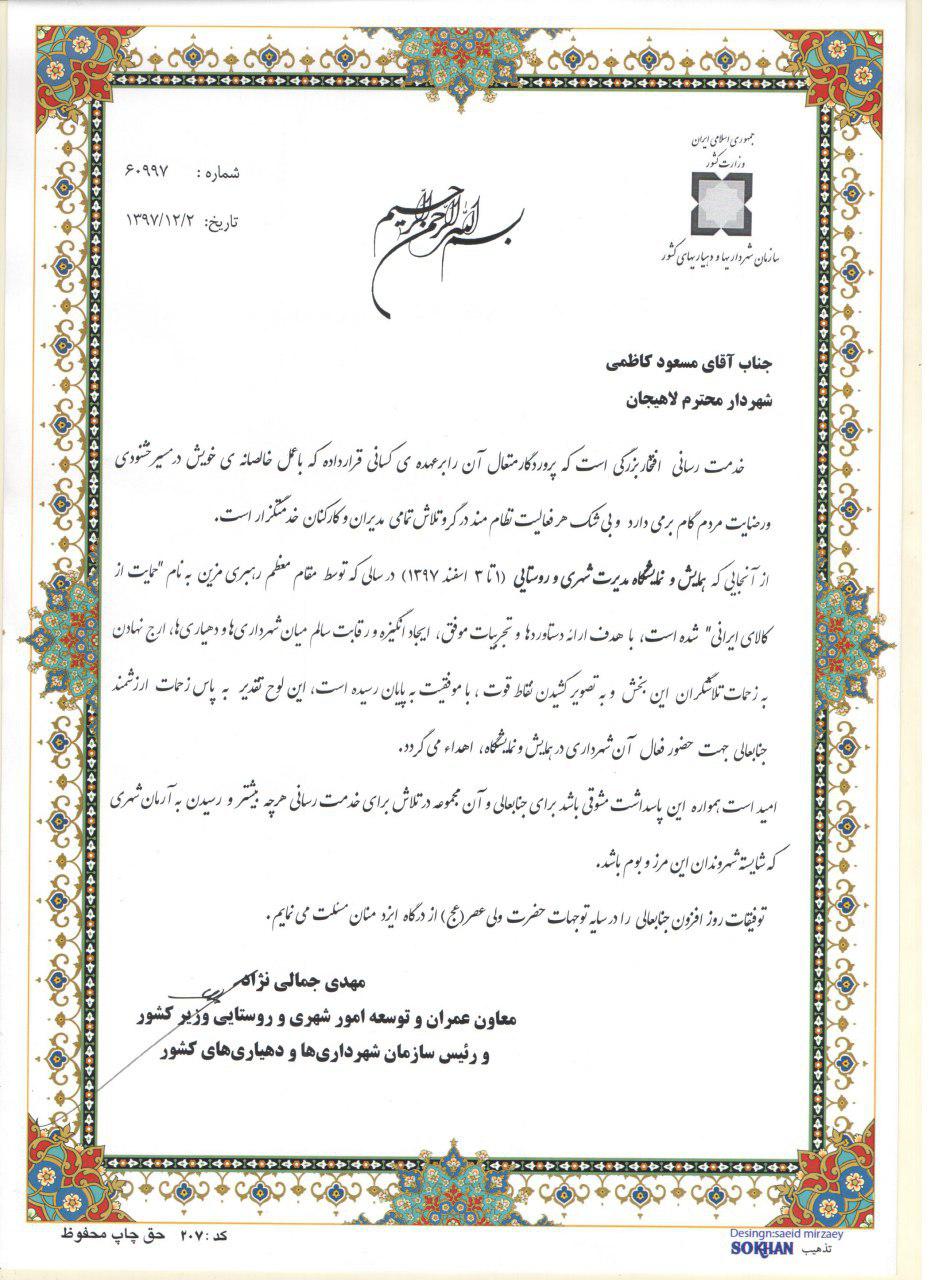 جمهوری اسلامی ایران
وزارت کشور
سازمان شهرداریها و دهیاریهای کشور
شماره : ۶۰۹۹۷
تاریخ: ۱۳۹۷/۱۲/۲
بسم الله الرحمن الرحیم
جناب آقای مسعود کاظمی
شهردار محترم لاهیجان
خدمت رسانی افتخار بزرگی است که پروردگار متعال آن را بر عهده ی کسانی قرار داده که با عمل خالصانه ی خویش در مسیر خشنودی
و رضایت مردم گام بر می دارد و بی شک هر فعالیت نظام مند در گرو تلاش تمامی مدیران و کارکنان خدمتگزار است.
از آنجایی که همایش و نمایشگاه مدیریت شهری و روستایی (۱ تا ۳ اسفند ۱۳۹۷) در سالی که توسط مقام معظم رهبری مزین به نام "حمایت از
کالای ایرانی" شده است، با هدف ارائه دستاوردها و تجربیات موفق، ایجاد انگیزه و رقابت سالم میان شهرداری ها و دهیاری ها، ارج نهادن
به زحمات تلاشگران این بخش و به تصویر کشیدن نقاط قوت ، با موفقیت به پایان رسیده است، این لوح تقدیر به پاس زحمات ارزشمند
جنابعالی جهت حضور فعال آن شهرداری در همایش و نمایشگاه، اهداء می گردد.
امید است همواره این پاسداشت مشوقی باشد برای جنابعالی و آن مجموعه در تلاش برای خدمت رسانی هرچه بیشتر و رسیدن به آرمان شهری
که شایسته شهروندان این مرز و بوم باشد.
توفیقات روز افزون جنابعالی را در سایه توجهات حضرت ولی عصر(عج) از درگاه ایزد منان مسئلت می نمایم.
مهدی جمالی نژاد
معاون عمران و توسعه امور شهری و روستایی وزیر کشور
و رئیس سازمان شهرداری‌ها و دهیاری‌های کشور
کد : ۲۰۷ حق چاپ محفوظ
Desingn:saeid mirzaey
تذهیب SOKHAN